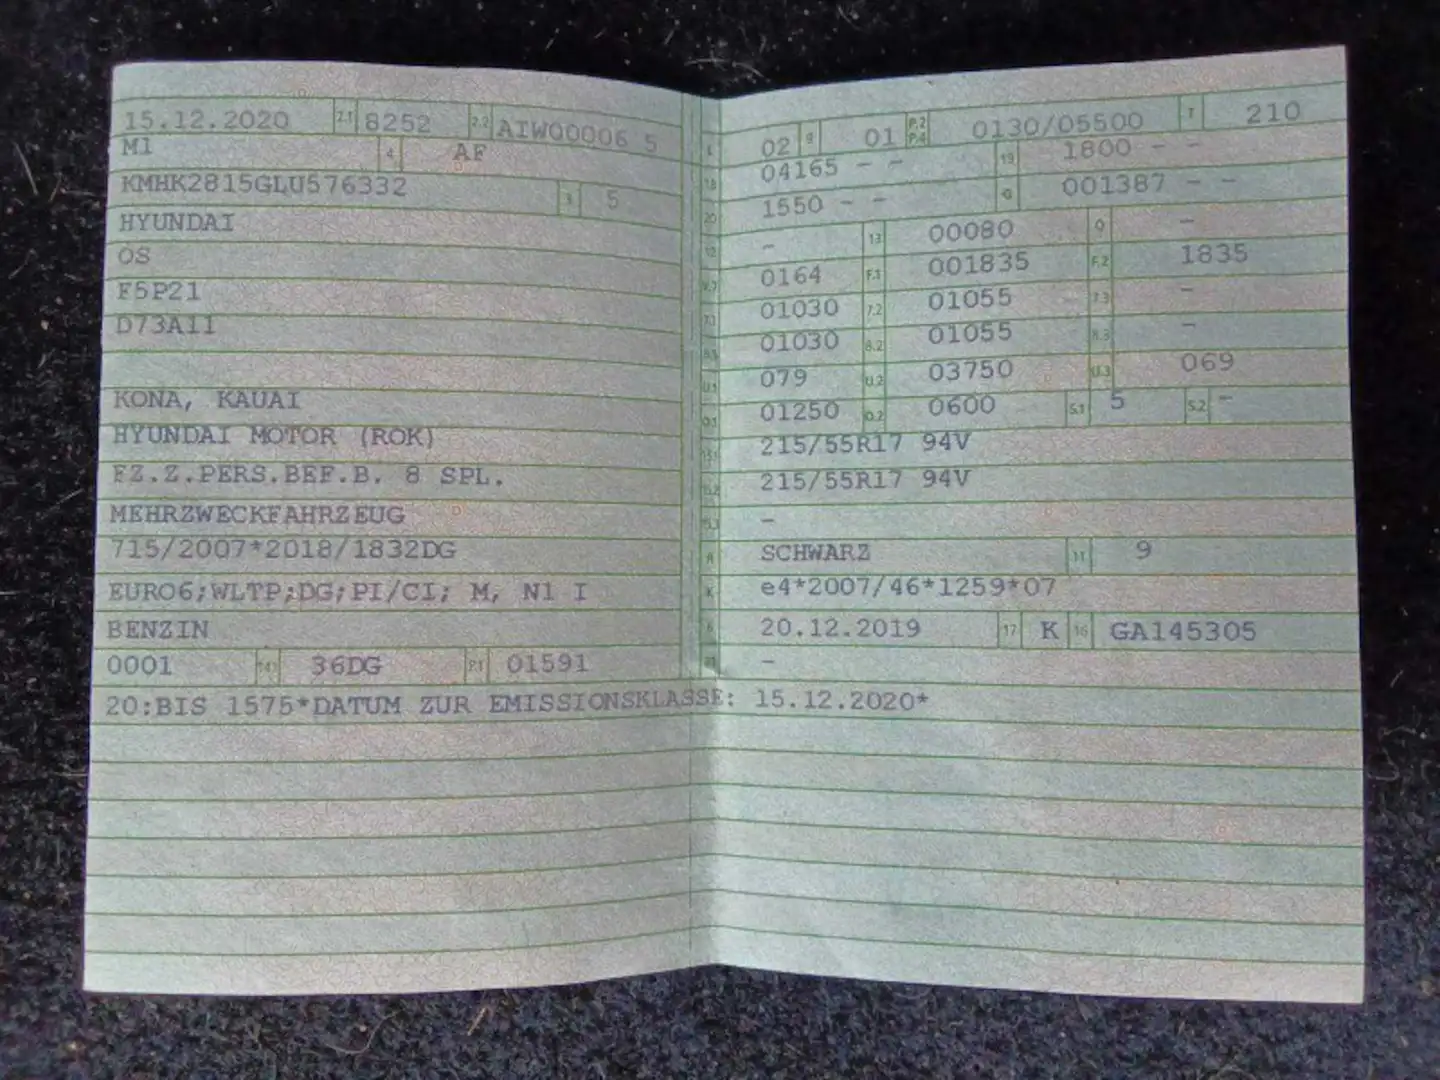 15.12.2020 2.1 8252 2.2 AIW00006 5
M1 4 AF
KMHK2815GLU576332 3 5
HYUNDAI
OS
F5P21
D73A11
KONA, KAUAI
HYUNDAI MOTOR (ROK)
FZ.Z.PERS.BEF.B. 8 SPL.
MEHRZWECKFAHRZEUG
715/2007*2018/1832DG
EURO6;WLTP;DG;PI/CI; M, N1 I
BENZIN
0001 14.1 36DG P.1 01591
L 02 9 01 P.2 P.4 0130/05500 T 210
18 04165 - - 19 1800 - -
20 1550 - - G 001387 - -
12 - 13 00080 Q -
V.7 0164 F.1 001835 F.2 1835
7.1 01030 7.2 01055 7.3 -
8.1 01030 8.2 01055 8.3 -
U.1 079 U.2 03750 U.3 069
O.1 01250 O.2 0600 S.1 5 S.2 -
15.1 215/55R17 94V
15.2 215/55R17 94V
15.3 -
R SCHWARZ 11 9
K e4*2007/46*1259*07
6 20.12.2019 17 K 16 GA145305
21 -
20:BIS 1575*DATUM ZUR EMISSIONSKLASSE: 15.12.2020*